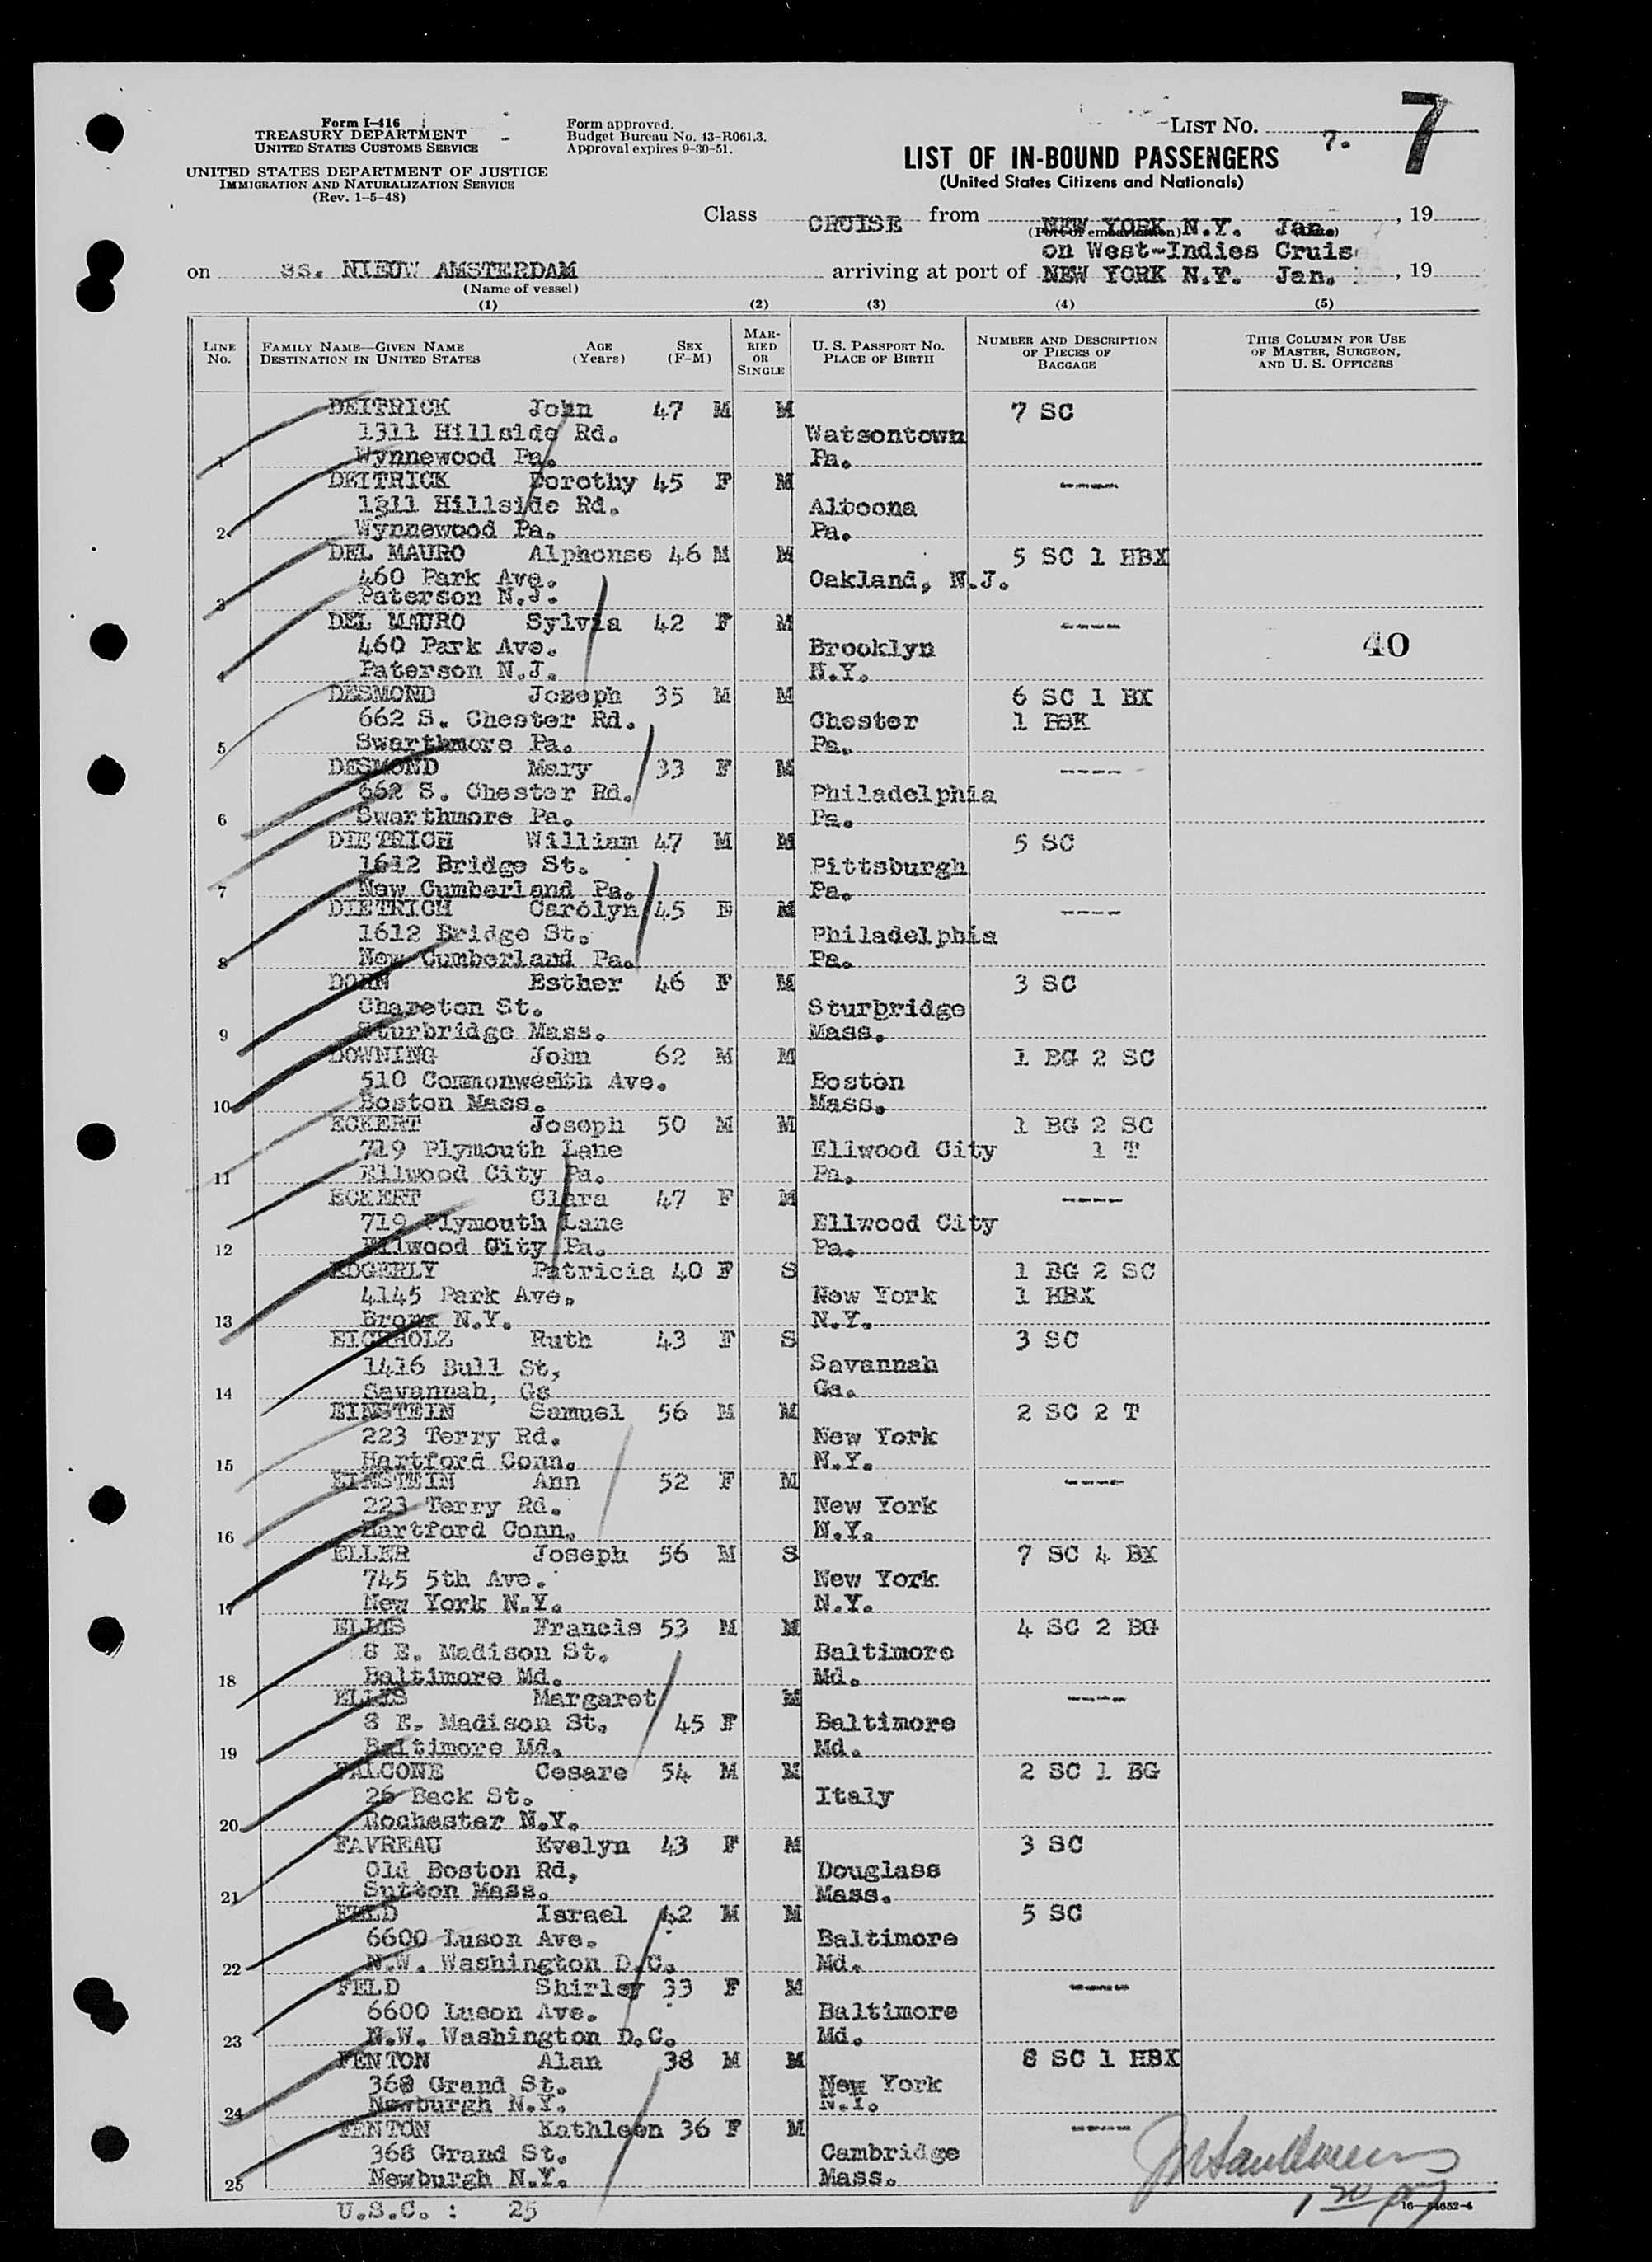 Form I-416
TREASURY DEPARTMENT
UNITED STATES CUSTOMS SERVICE
UNITED STATES DEPARTMENT OF JUSTICE
IMMIGRATION AND NATURALIZATION SERVICE
(Rev. 1-5-48)
Form approved.
Budget Bureau No. 43-R061.3.
Approval expires 9-30-51.
LIST NO. 7. 7
LIST OF IN-BOUND PASSENGERS
(United States Citizens and Nationals)
Class CRUISE from NEW YORK N.Y. Jan. , 19
(Port of embarkation)
on West-Indies Cruise
on ss. NIEUW AMSTERDAM arriving at port of NEW YORK N.Y. Jan. , 19
(Name of vessel)
(1) (2) (3) (4) (5)
LINE No. FAMILY NAME—GIVEN NAME DESTINATION IN UNITED STATES AGE (Years) SEX (F-M) MARRIED OR SINGLE U. S. PASSPORT NO. PLACE OF BIRTH NUMBER AND DESCRIPTION OF PIECES OF BAGGAGE THIS COLUMN FOR USE OF MASTER, SURGEON, AND U. S. OFFICERS
DEITRICK John 47 M M 7 SC
1311 Hillside Rd. Watsontown
1 Wynnewood Pa. Pa.
DEITRICK Dorothy 45 F M ----
1311 Hillside Rd. Altoona
2 Wynnewood Pa. Pa.
DEL MAURO Alphonse 46 M M 5 SC 1 HBX
460 Park Ave. Oakland, N.J.
3 Paterson N.J.
DEL MAURO Sylvia 42 F M ----
460 Park Ave. Brooklyn 40
4 Paterson N.J. N.Y.
DESMOND Joseph 35 M M 6 SC 1 BX
662 S. Chester Rd. Chester 1 BSK
5 Swarthmore Pa. Pa.
DESMOND Mary 33 F M ----
662 S. Chester Rd. Philadelphia
6 Swarthmore Pa. Pa.
DIETRICH William 47 M M 5 SC
1612 Bridge St. Pittsburgh
7 New Cumberland Pa. Pa.
DIETRICH Carolyn 45 F M ----
1612 Bridge St. Philadelphia
8 New Cumberland Pa. Pa.
DORN Esther 46 F M 3 SC
Chareton St. Sturbridge
9 Sturbridge Mass. Mass.
DOWNING John 62 M M 1 BG 2 SC
510 Commonwealth Ave. Boston
10 Boston Mass. Mass.
ECKERT Joseph 50 M M 1 BG 2 SC
719 Plymouth Lane Ellwood City 1 T
11 Ellwood City Pa. Pa.
ECKERT Clara 47 F M ----
719 Plymouth Lane Ellwood City
12 Ellwood City Pa. Pa.
EDGERLY Patricia 40 F S 1 BG 2 SC
4145 Park Ave. New York 1 HBX
13 Bronx N.Y. N.Y.
EICHHOLZ Ruth 43 F S 3 SC
1416 Bull St, Savannah
14 Savannah, Ga Ga.
EINSTEIN Samuel 56 M M 2 SC 2 T
223 Terry Rd. New York
15 Hartford Conn. N.Y.
EINSTEIN Ann 52 F M ----
223 Terry Rd. New York
16 Hartford Conn. N.Y.
ELLER Joseph 56 M S 7 SC 4 BX
745 5th Ave. New York
17 New York N.Y. N.Y.
ELLIS Francis 53 M M 4 SC 2 BG
8 E. Madison St. Baltimore
18 Baltimore Md. Md.
ELLIS Margaret M ----
8 E. Madison St. 45 F Baltimore
19 Baltimore Md. Md.
FALCONE Cesare 54 M M 2 SC 1 BG
26 Back St. Italy
20 Rochester N.Y.
FAVREAU Evelyn 43 F M 3 SC
Old Boston Rd, Douglass
21 Sutton Mass. Mass.
FELD Israel 42 M M 5 SC
6600 Luson Ave. Baltimore
22 N.W. Washington D.C. Md.
FELD Shirley 33 F M ----
6600 Luson Ave. Baltimore
23 N.W. Washington D.C. Md.
FENTON Alan 38 M M 8 SC 1 HBX
368 Grand St. New York
24 Newburgh N.Y. N.Y.
FENTON Kathleen 36 F M ----
368 Grand St. Cambridge
25 Newburgh N.Y. Mass.
U.S.C. : 25